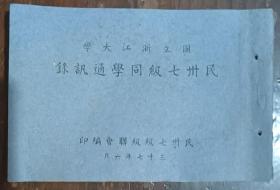 學大江浙立國
錄訊通學同級七卅民
印編會聯級級七卅民
月六年七十三